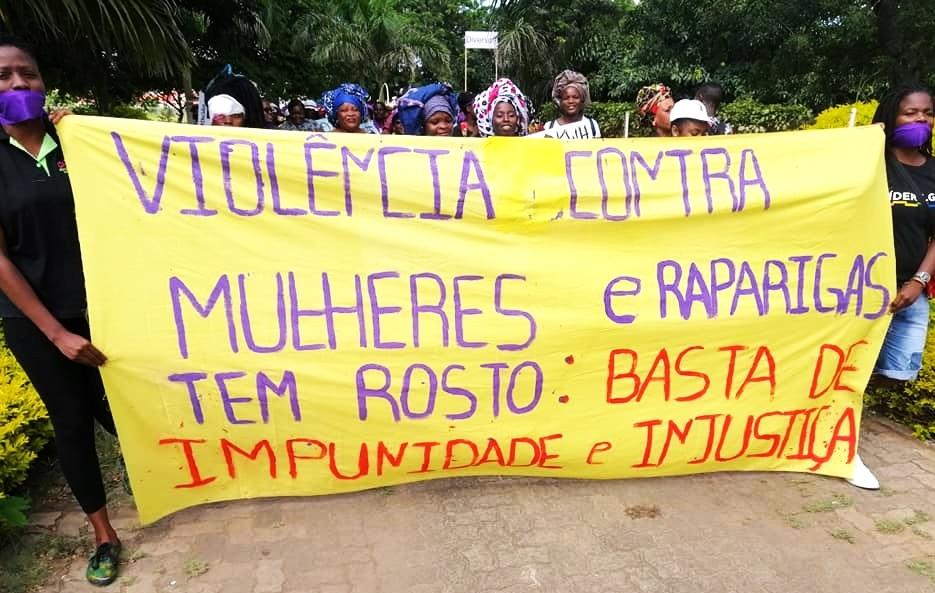 Diversi
VIOLÊNCIA CONTRA
MULHERES e RAPARIGAS
TEM ROSTO: BASTA DE
IMPUNIDADE e INJUSTIÇA